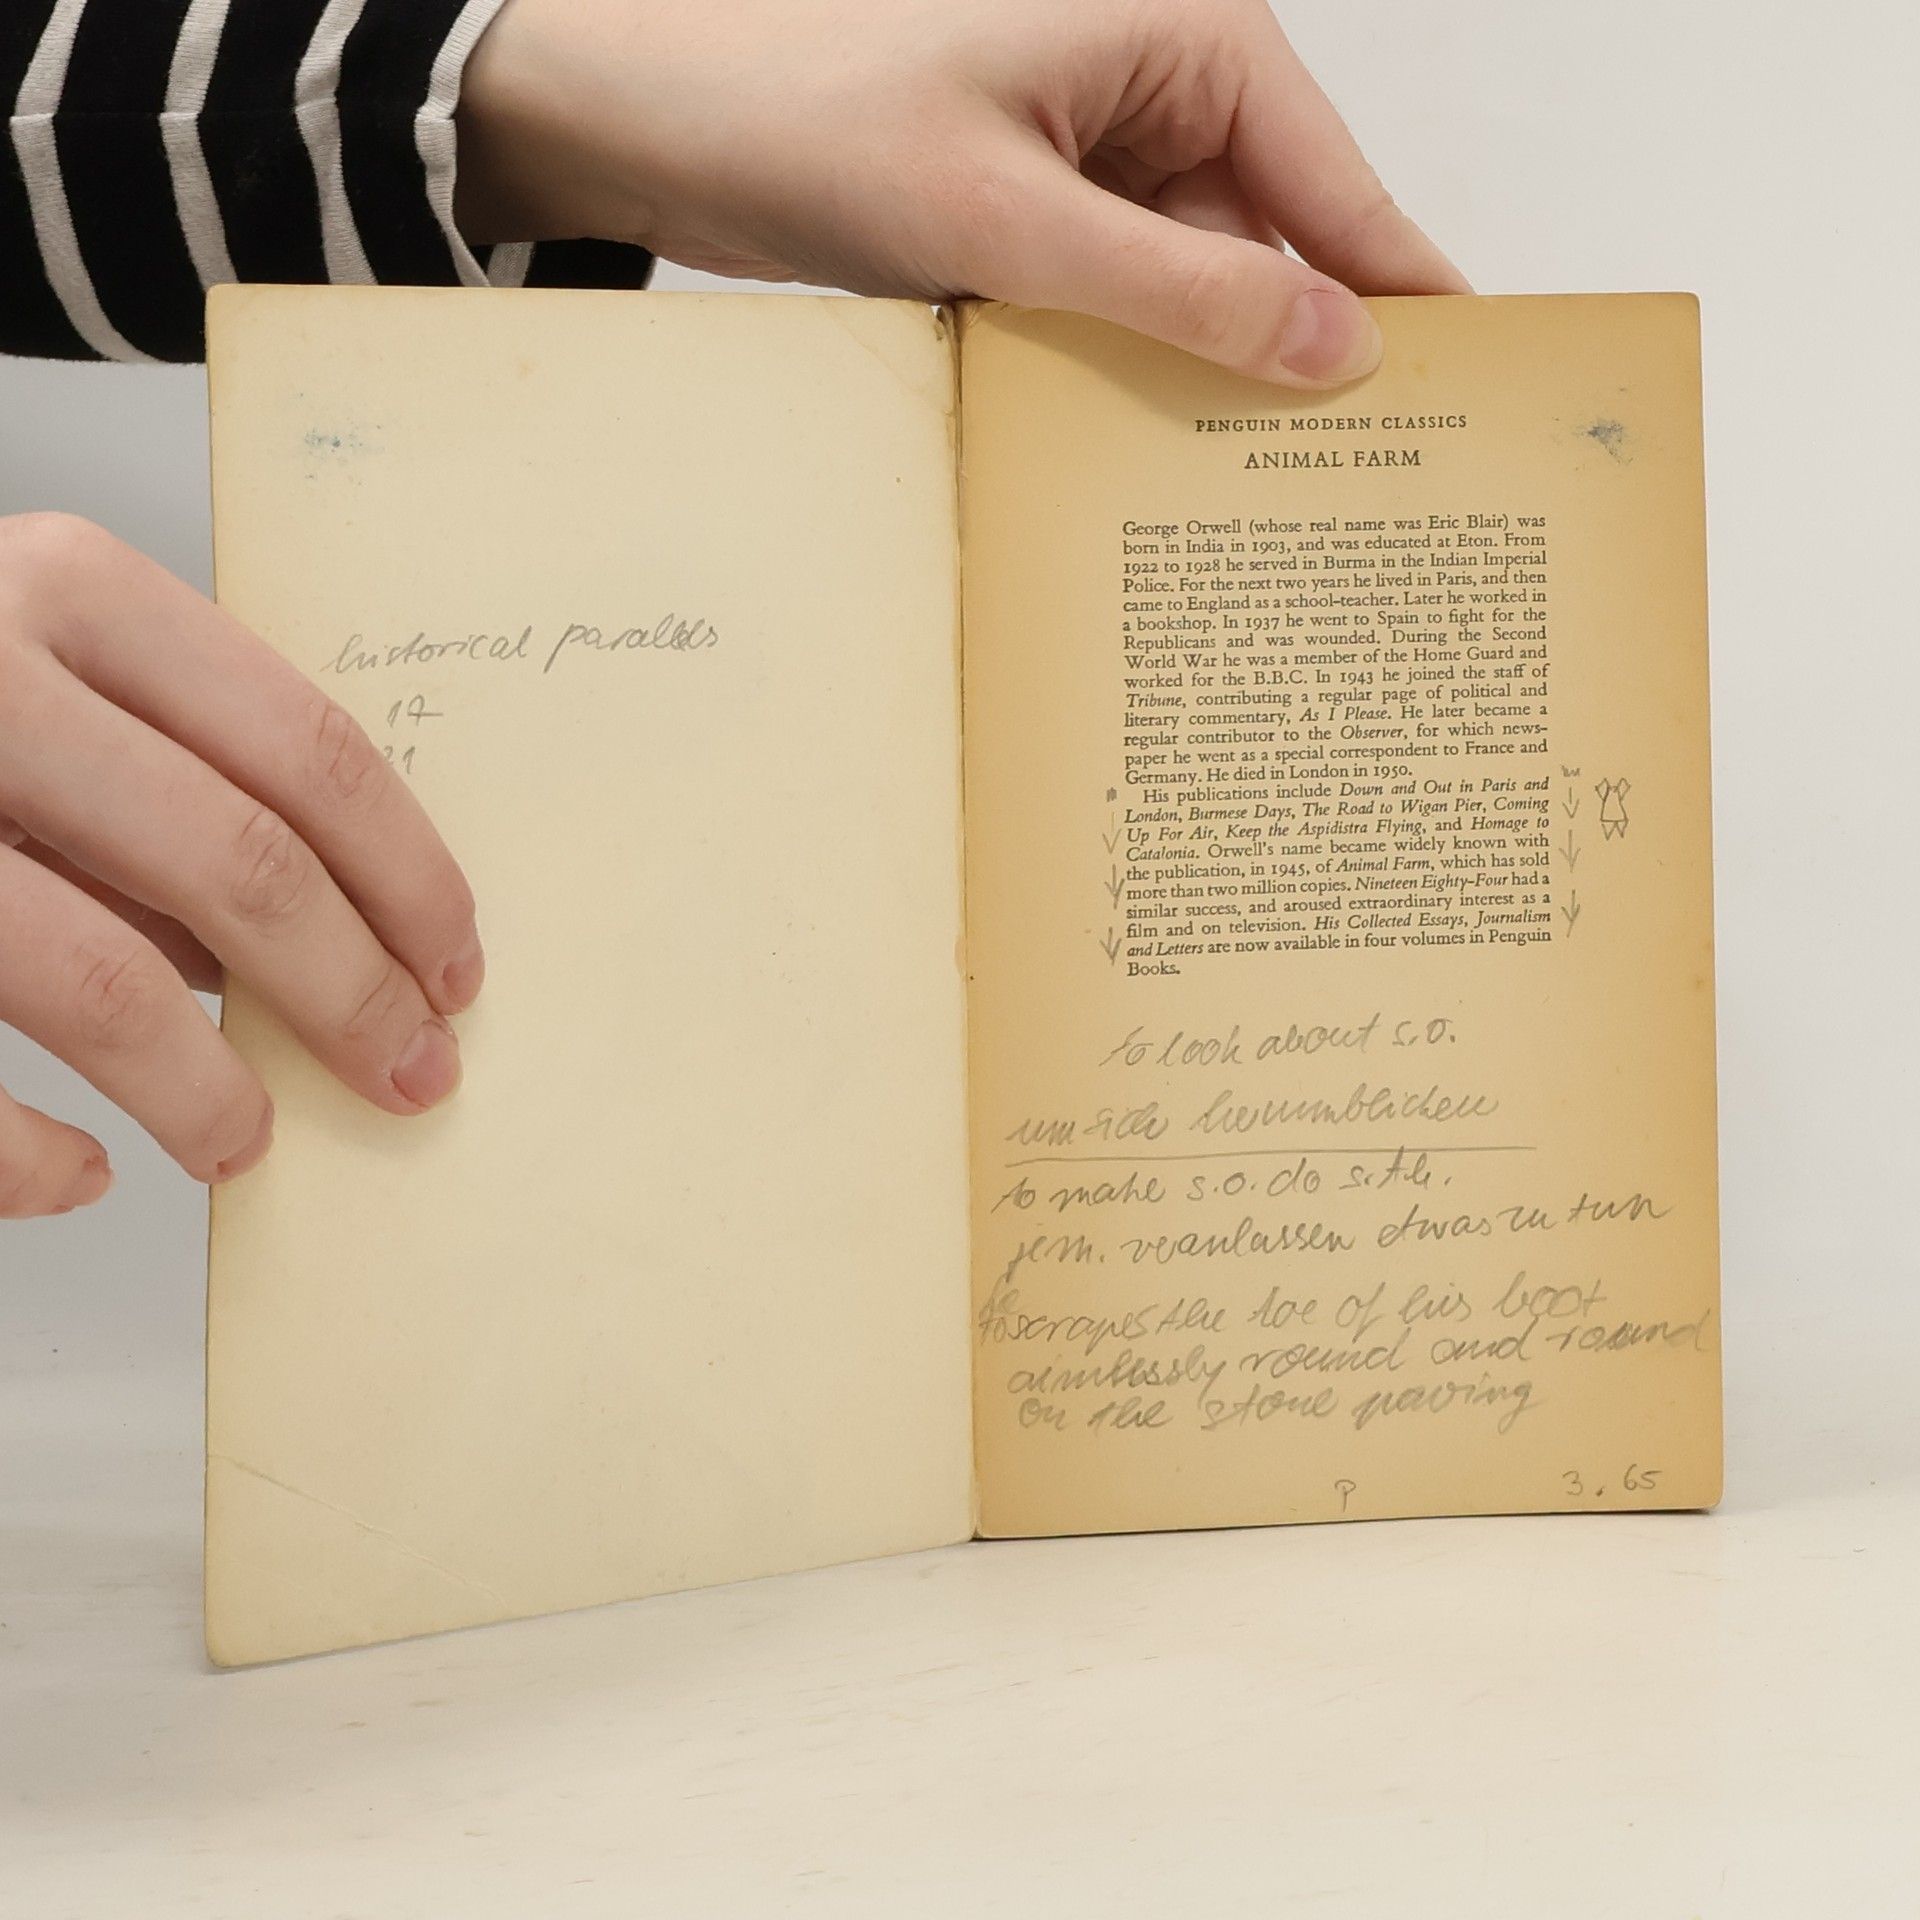 historical parallels
17
21
PENGUIN MODERN CLASSICS
ANIMAL FARM
George Orwell (whose real name was Eric Blair) was
born in India in 1903, and was educated at Eton. From
1922 to 1928 he served in Burma in the Indian Imperial
Police. For the next two years he lived in Paris, and then
came to England as a school-teacher. Later he worked in
a bookshop. In 1937 he went to Spain to fight for the
Republicans and was wounded. During the Second
World War he was a member of the Home Guard and
worked for the B.B.C. In 1943 he joined the staff of
Tribune, contributing a regular page of political and
literary commentary, As I Please. He later became a
regular contributor to the Observer, for which news-
paper he went as a special correspondent to France and
Germany. He died in London in 1950.
His publications include Down and Out in Paris and
London, Burmese Days, The Road to Wigan Pier, Coming
Up For Air, Keep the Aspidistra Flying, and Homage to
Catalonia. Orwell's name became widely known with
the publication, in 1945, of Animal Farm, which has sold
more than two million copies. Nineteen Eighty-Four had a
similar success, and aroused extraordinary interest as a
film and on television. His Collected Essays, Journalism
and Letters are now available in four volumes in Penguin
Books.
to look about s.o.
um sich herumblicken
to make s.o. do s.th.
jem. veranlassen etwas zu tun
scrapes the toe of his boot
aimlessly round and round
on the stone paving
P 3.65